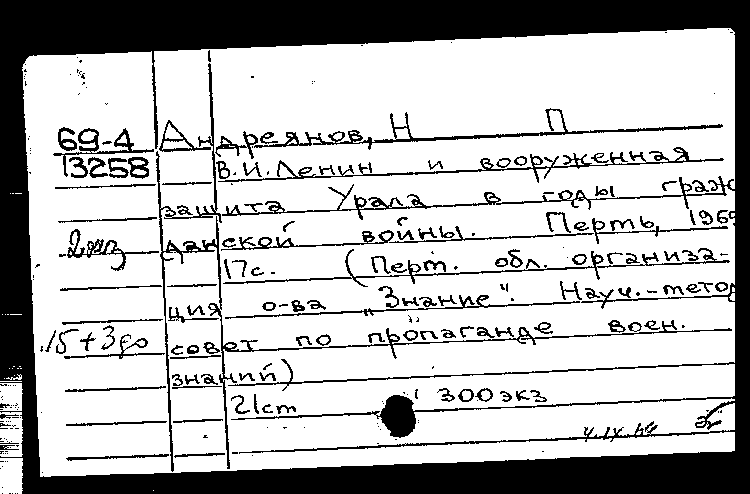 69-4 Андреянов, Н П
13258 В.И.Ленин и вооруженная
защита Урала в годы граж
2 экз данской войны. Пермь, 1969
17с. (Перм. обл. организа-
ция о-ва „Знание". Науч.-метод
15+3 до совет по пропаганде воен.
знаний)
21см 300экз
4.IX.69